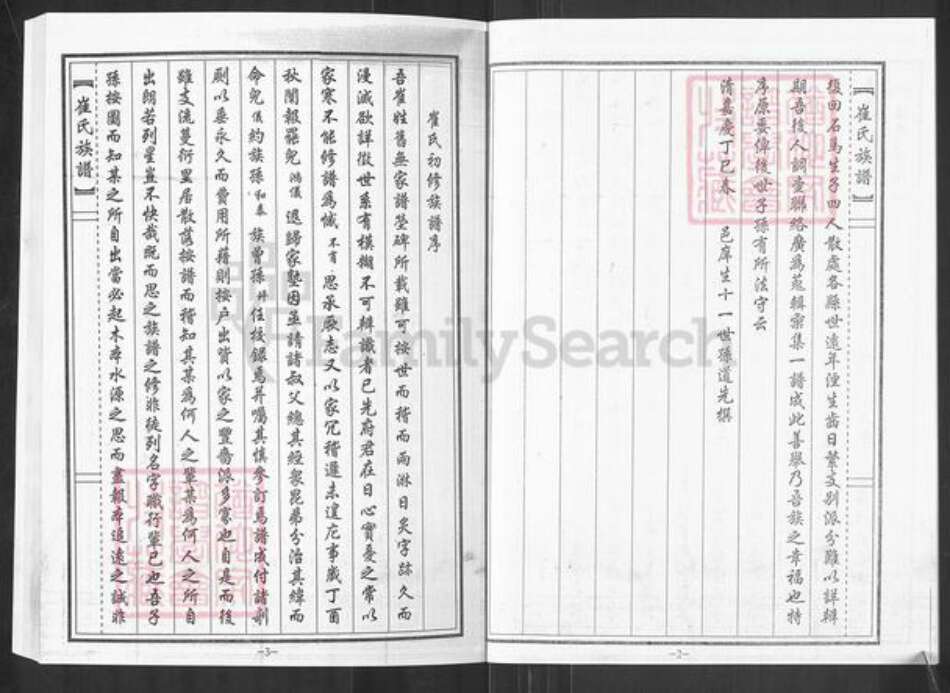 【崔氏族譜】
復回石馬生子四人散處各縣世遠年湮生齒日繁支別派分難以詳辯
期吾後人調查聯絡廣為蒐輯彙集一譜成此善舉乃吾族之幸福也特
序原委俾後世子孫有所法守云
清嘉慶丁巳春 邑庠生十一世孫道先撰
-2-
崔氏初修族譜序
吾崔姓舊無家譜塋碑所載雖可按世而稽而雨淋日炙字跡久而
漫滅欲詳徵世系有模糊不可辯識者已先府君在日心實憂之常以
家寒不能修譜為憾不肖思承厥志又以家冗稽遲未遑庀事歲丁酉
秋闈報罷兒鴻儀還歸家塾因並請諸叔父總其經眾昆弟分治其緯而
命兒儀約族孫和泰族曾孫升任校錄焉并囑其慎參訂焉譜成付諸剞
劂以垂永久而費用所藉則按户出資以家之豐嗇派多寡也自是而後
雖支流蔓衍里居散落按譜而稽知其某為何人之輩某為何人之所自
出朗若列星豈不快哉既而思之族譜之修非徒列名字職行輩已也吾子
孫按圖而知某之所自出當必起木本水源之思而盡報本追遠之誠非
【崔氏族譜】
-3-
FamilySearch